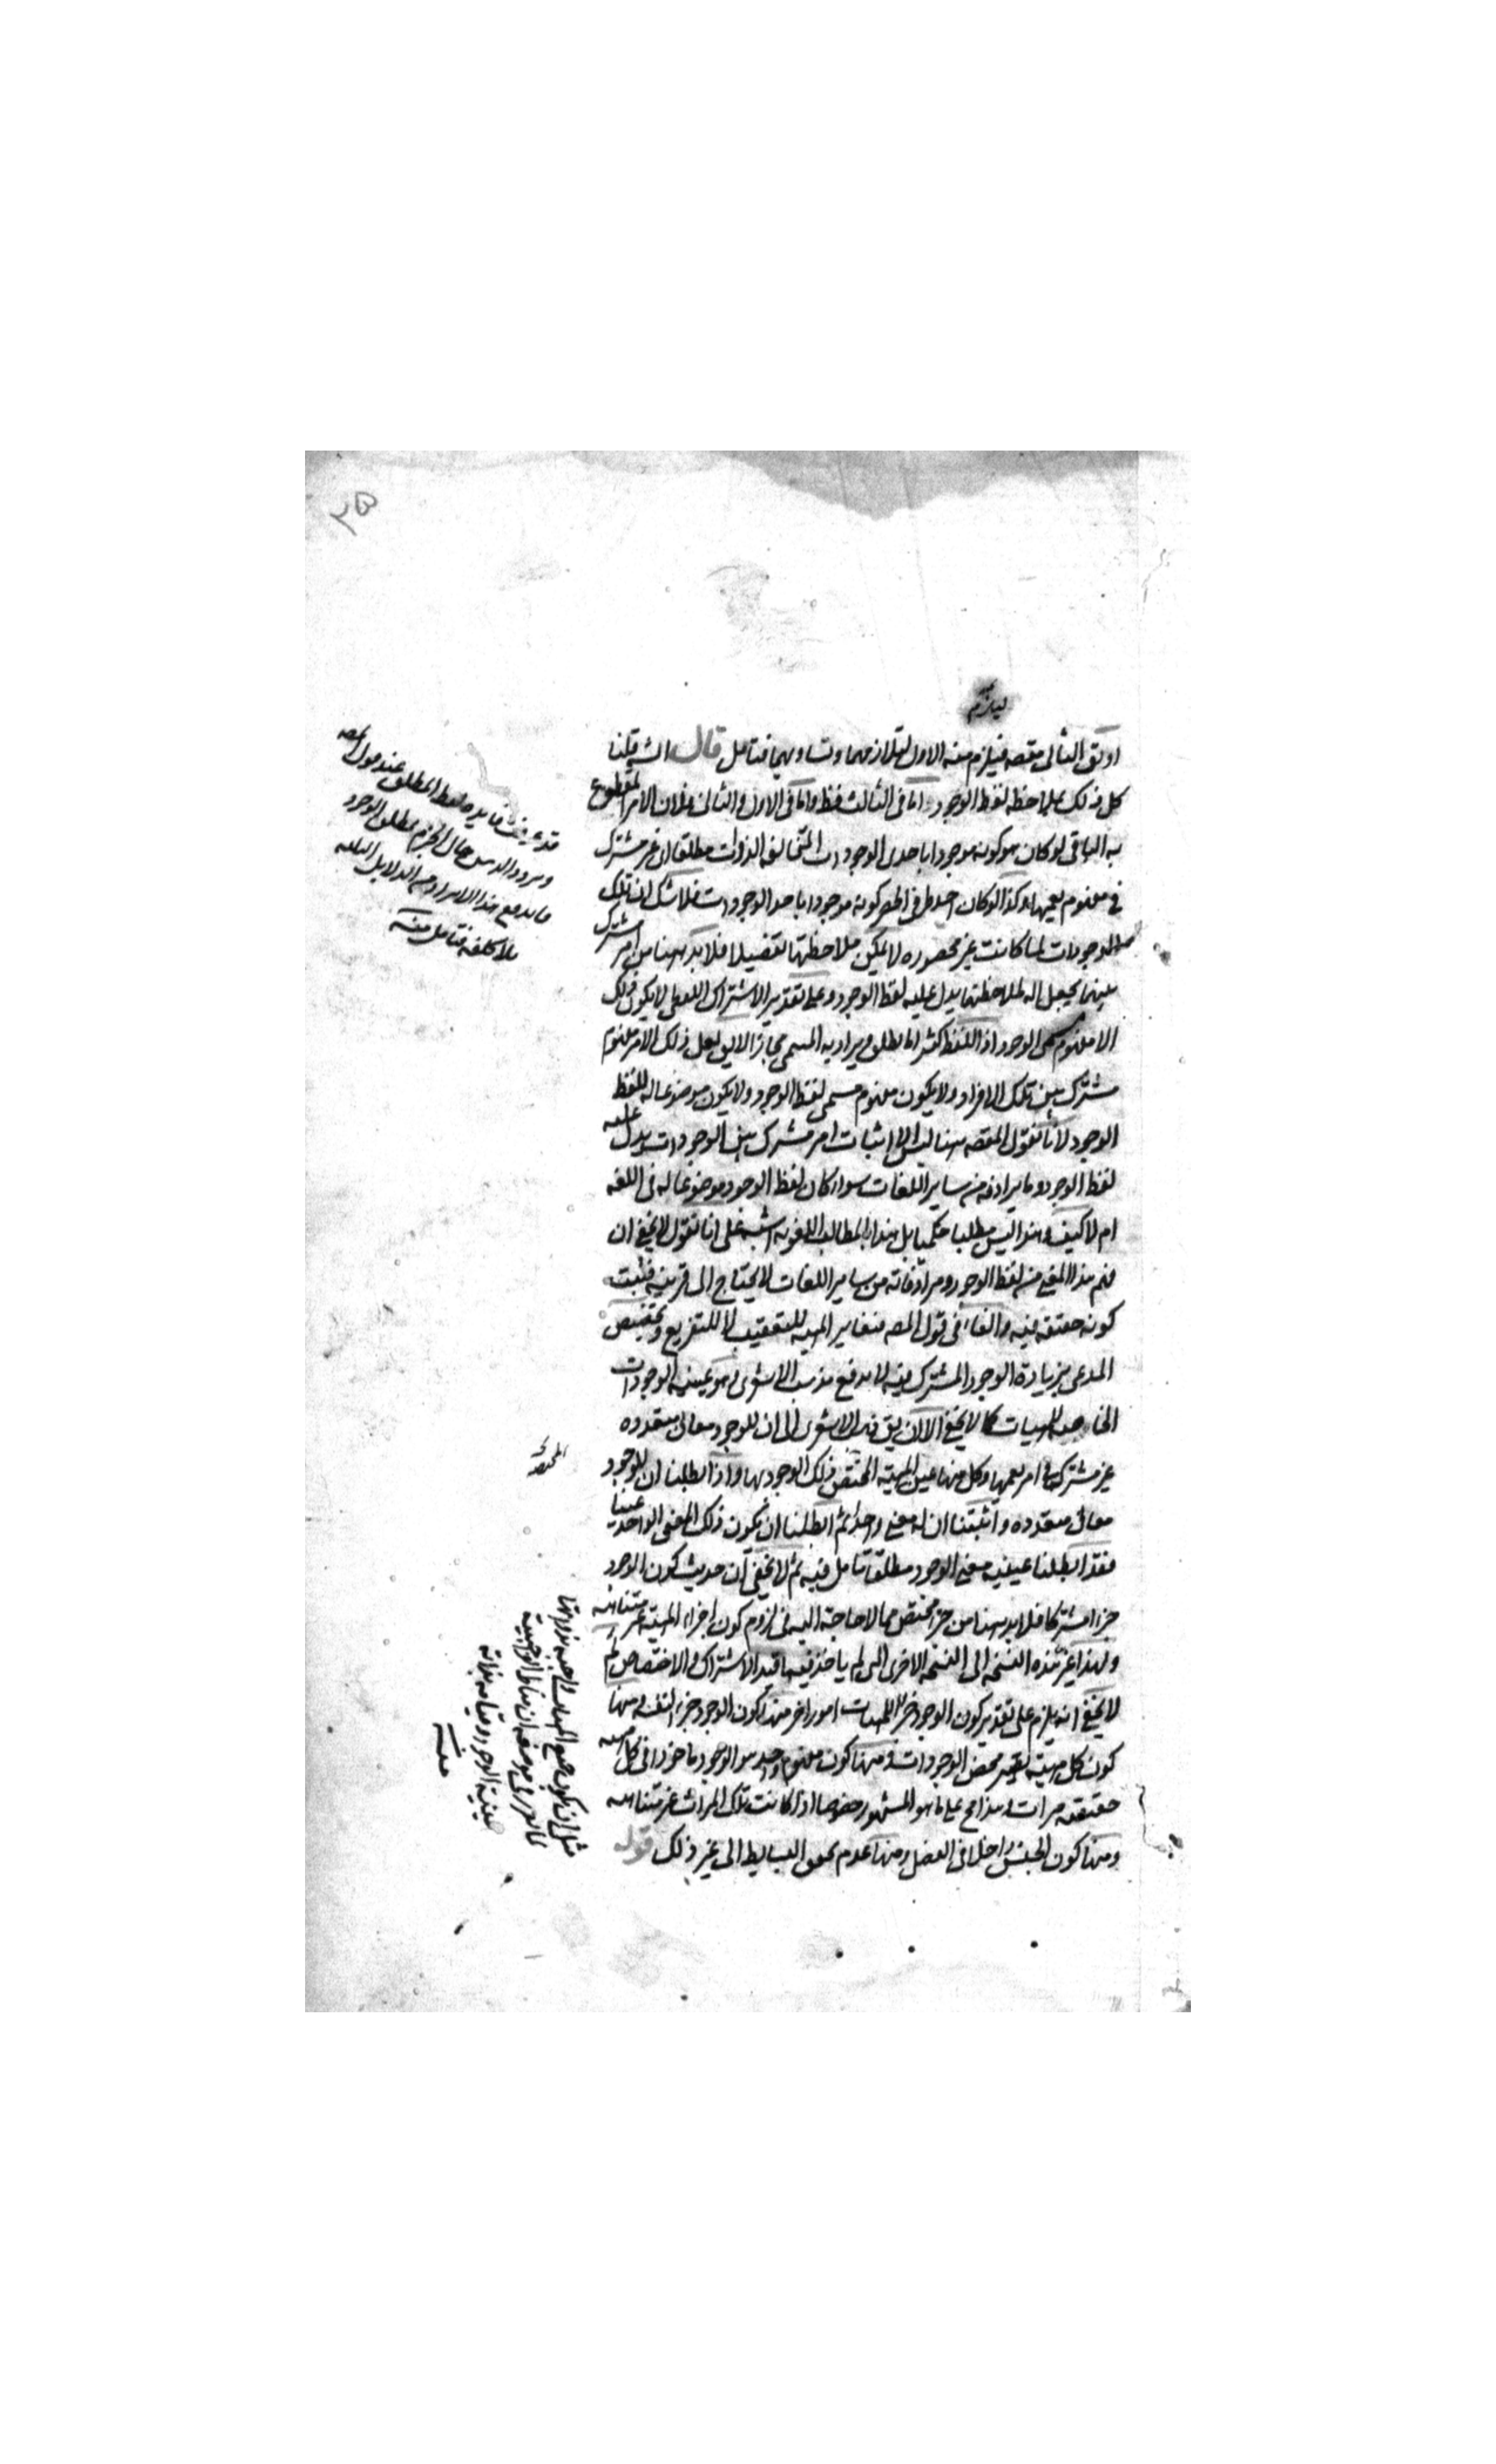 ٢٥
ليلزم
او يق الثانى مقصه فيلزم منه الاول لتلازمهما وتساويهما فتامل قال الش قلنا
كل ذلك بملاحظة لفظ الوجود اما فى الثالث فظ واما فى الاول والثانى فلان الامر المقطوع
به الباقى لو كان هو كونه موجودا باحدى الوجودات المتخالفة الذوات مطلقا اى غير مشترك
فى مفهوم يعمها وكذا لو كان احد طرفى الحصر كونه موجودا باحد الوجودات فلا شك ان تلك
الوجودات لما كانت غير محصوره لا يمكن ملاحظتها تفصيلا فلا بد هنا من امر مشترك
بينهما يجعل اله لملاحظتها يدل عليه لفظ الوجود وعلى تقدير الاشتراك اللفظى لا يكون ذلك
الا مفهوم مسمى الوجود اذ اللفظ كثيرا ما يطلق ويراد به المسمى مجازا لا يق لعل ذلك الامر مفهوم
مشترك بين تلك الافراد ولا يكون مفهوم مسمى لفظ الوجود ولا يكون موضوعا له للفظ
الوجود لانا نقول المقصه هنا ليس الا اثبات امر مشترك بين الوجودات ويدل عليه
لفظ الوجود وما يرادفه من ساير اللغات سواء كان لفظ الوجود موضوعا له فى اللغه
ام لا كيف وهذا ليس مطلبا حكميا بل هذا بالمطالب اللغويه اشبه على انا نقول لا يخفى ان
فهم هذا المعنى من لفظ الوجود ومرادفاته من ساير اللغات لا يحتاج الى قرينه فثبت
كونه حقيقه فيه والفاء فى قول المص فيغاير المهيه للتعقيب لا للتفريع وتخصيص
المدعى بزيادة الوجود المشترك فيه لا يدفع مذهب الاشعرى وهو عينيه الوجودات
الخاصه للمهيات كما لا يخفى الا ان يق ذهب الاشعرى الى ان للوجود معانى متعدده
غير مشتركة فى امر يعمها وكل منها عين المهيه المختص ذلك الوجود بها واذا ابطلنا ان للوجود
معانى متعدده واثبتنا ان له معنى واحدا ثم ابطلنا ان يكون ذلك المعنى الواحد عينا
فقد ابطلنا عينيه معنى الوجود مطلقا تامل فيه ثم لا يخفى ان حديث كون الوجود
جزءا مشتركا فلا بد هنا من جزء مختص مما لا حاجة اليه فى لزوم كون اجزاء المهيه غير متناهيه
ولهذا غير هذه النسخه الى النسخه الاخرى التى لم ياخذ فيها قيد الاشتراك والاختصاص ثم
لا يخفى انه يلزم على تقدير كون الوجود جزءا للمهيات امورا اخر منها كون الوجود جزء لنفسه ومنها
كون كل مهيه محض الوجودات ومنها كون مفهوم واحد هو الوجود ماخوذا فى كل مهيه
حقيقه مرات وهذا مح على ما هو المشهور خصوصا اذا كانت تلك المراتب غير متناهيه
ومنها كون الجنس داخلا فى الفصل ومنها عدم تحقق البسايط الى غير ذلك قوله
قد عرفت فايده لفظ المطلق عند قول المص
حال الجزم بمطلق الوجود
ما يدفع هذا الايراد من الدلايل الثلثه
بلا كلفه فتامل منه
المختصه
مثل ان يكون جميع المهيات واجبه بذواتها
لما تقرر فى موضعه ان مناط الواجبية
عينية الوجود وقيامه بذاته
منه